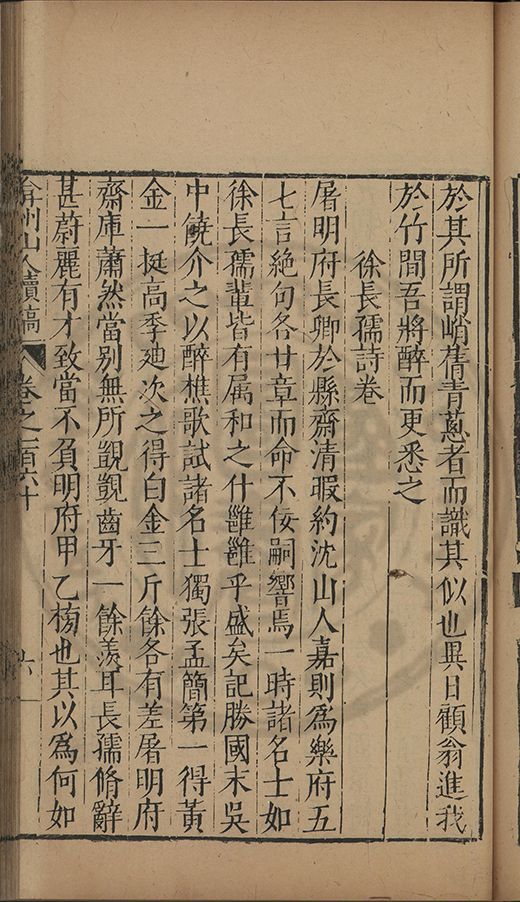 於其所謂峭蒨青蔥者而識其似也異日顧翁進我
於竹間吾將醉而更悉之
徐長孺詩卷
屠明府長卿於縣齋清暇約沈山人嘉則為樂府五
七言絕句各廿章而命不佞嗣響焉一時諸名士如
徐長孺輩皆有属和之什雝雝乎盛矣記勝國末吳
中饒介之以醉樵歌試諸名士獨張孟簡第一得黃
金一挺高季廸次之得白金三斤餘各有差屠明府
齋庫蕭然當別無所觊覬齒牙一餘羨耳長孺脩辭
甚蔚麗有才致當不負明府甲乙榜也其以為何如
弇州山人續稿 卷之一百六十 六